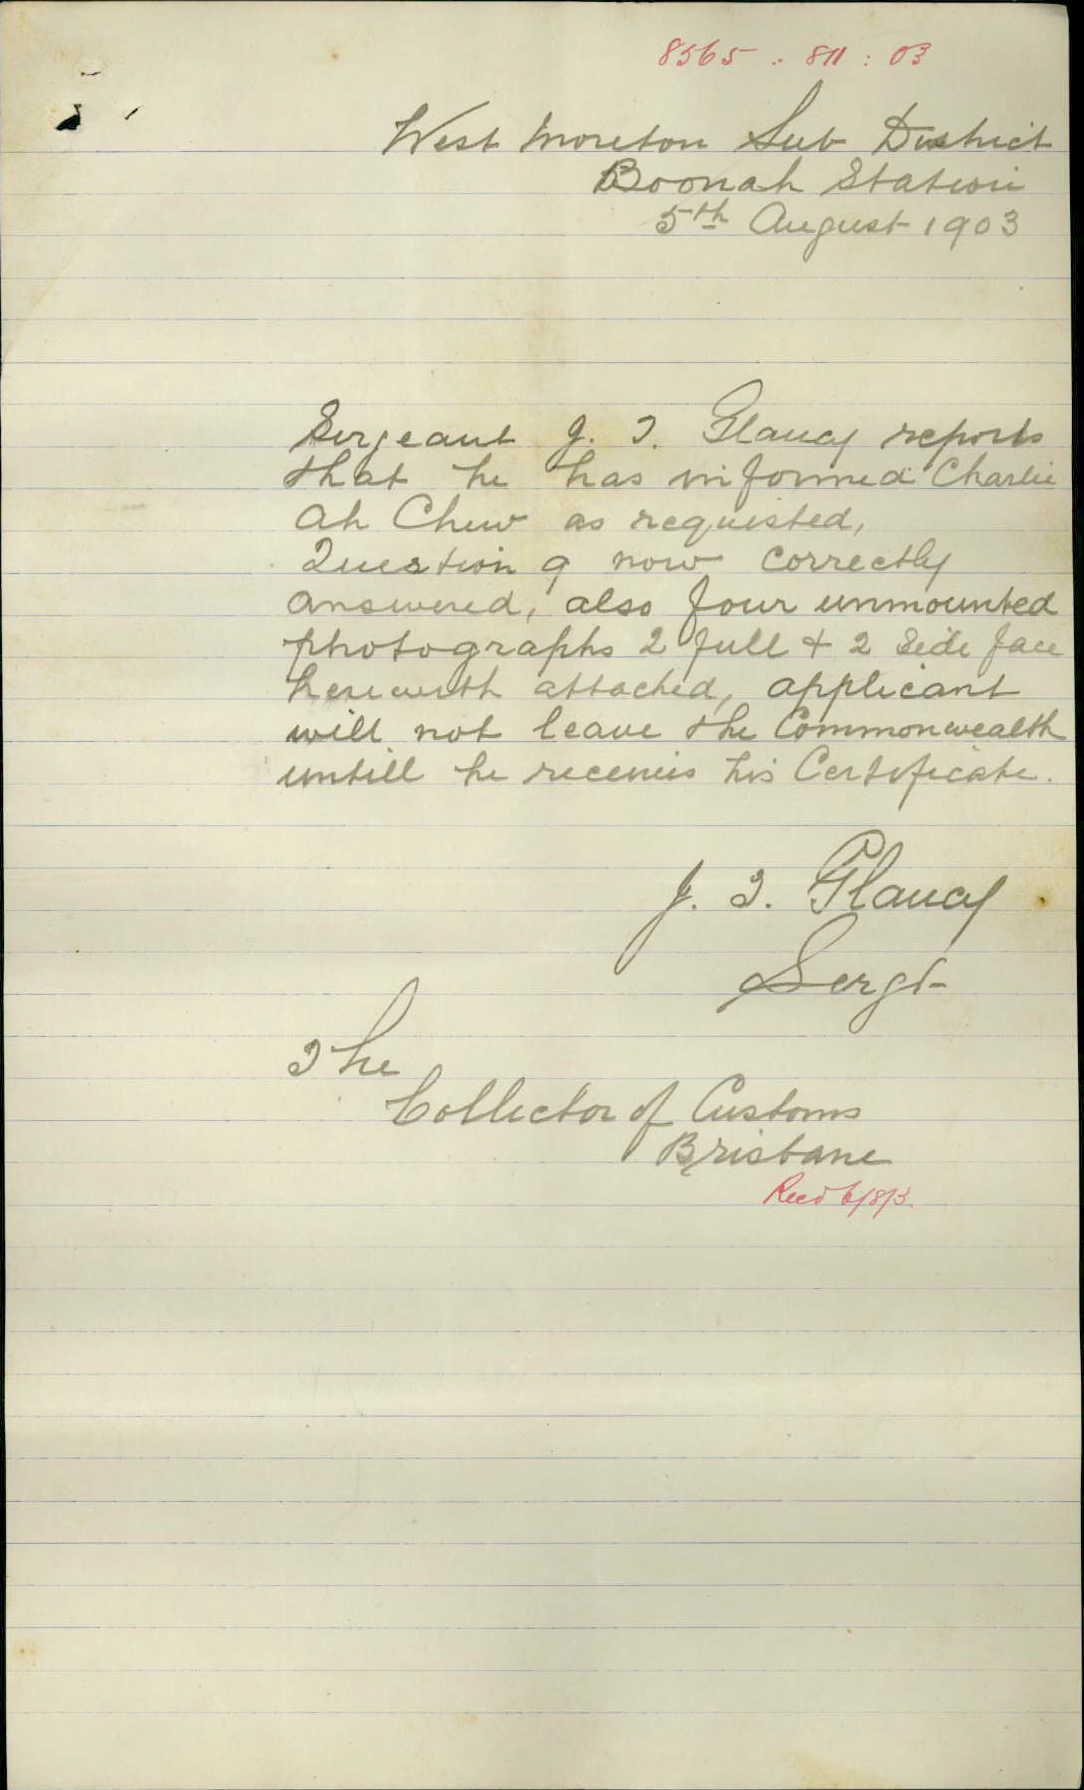 8565 . 811 : 03
West Moreton Sub District
Boonah Station
5th August 1903
Sergeant J. T. Glancy reports
that he has informed Charlie
Ah Chew as requested,
Question 9 now correctly
answered, also four unmounted
photographs 2 full + 2 Side face
herewith attached, applicant
will not leave the Commonwealth
untill he receives his Certificate.
J. T. Glancy
Sergt
The
Collector of Customs
Brisbane
Recd 6/8/3.